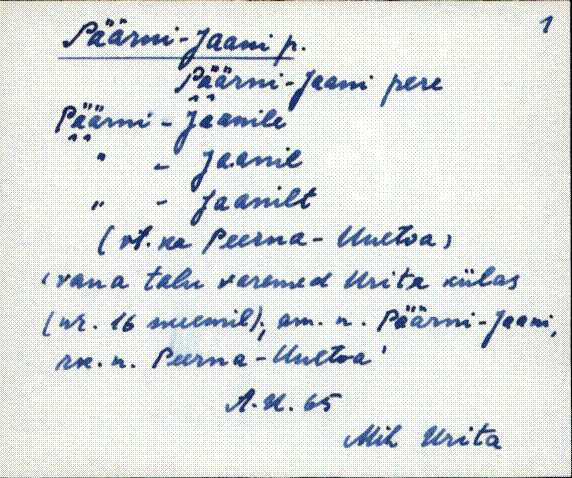 1
Päärni-Jaani p.
Päärni-Jaani pere
Päärni-Jaanile
" - Jaanil
" - Jaanilt
(vt. ka Peerna-Uuetoa)
'vana talu varemed Urita külas
(nr. 16 skeemil); am. n. Päärni-Jaani,
rk. n. Peerna-Uuetoa'
A.U. 65
Mih Urita